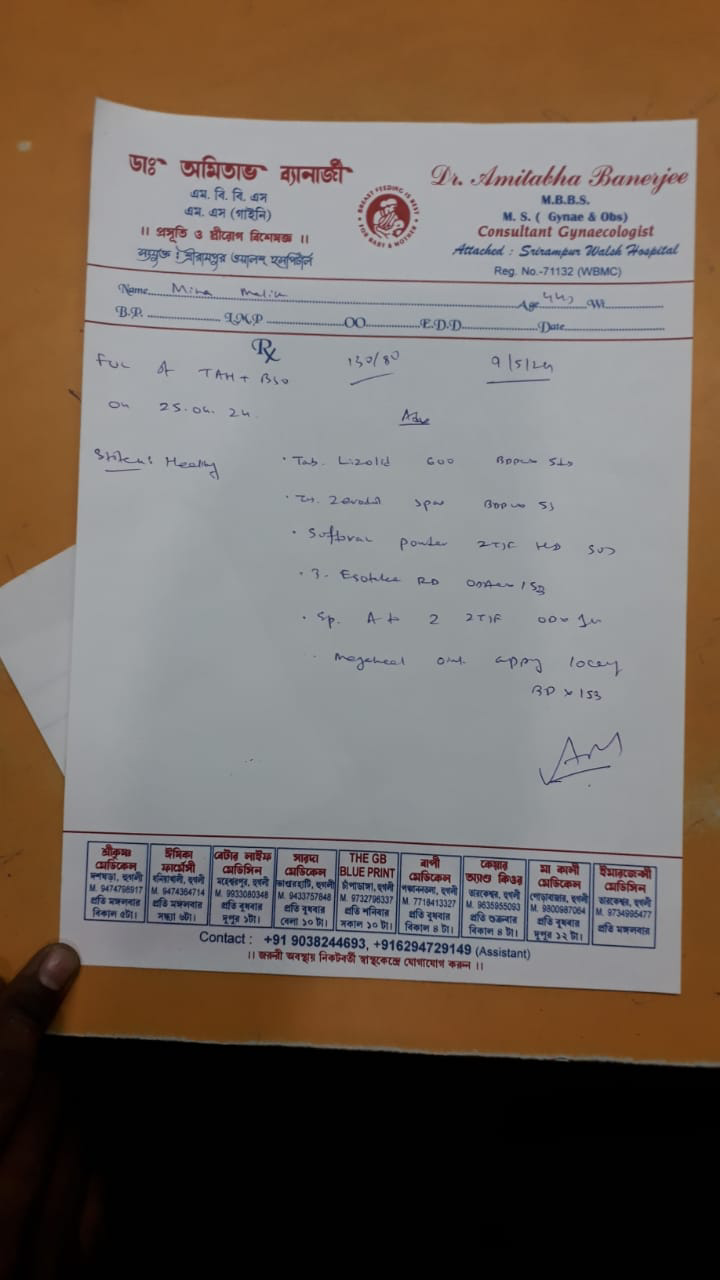 ডাঃ অমিতাভ ব্যানার্জী
এম. বি. বি. এস
এম. এস (গাইনি)
।। প্রসূতি ও স্ত্রীরোগ বিশেষজ্ঞ ।।
সংযুক্ত : শ্রীরামপুর ওয়ালশ হসপিটাল
BREAST FEEDING IS BEST
FOR BABY & MOTHER
Dr. Amitabha Banerjee
M.B.B.S.
M. S. ( Gynae & Obs)
Consultant Gynaecologist
Attached : Srirampur Walsh Hospital
Reg. No.-71132 (WBMC)
Name Mina Malik Age 44y Wt
B.P. L.M.P OO E.D.D Date
Rx
FUC of TAH + BSO 130/80 9/5/24
on 25.04.24.
Adv
Stitch: Healthy
Tab. Lizolid 600
Zerodol
powder 2TSF
RD
Sp. A to Z 2TSF
Megaheal oint. apply locally
BD x
শ্রীকৃষ্ণ মেডিকেল
দশঘড়া, হুগলী
M. 9474796917
প্রতি মঙ্গলবার
বিকাল ৫টা।
ঈশিকা ফার্মেসী
হুগলী
M. 9474364714
প্রতি মঙ্গলবার
সন্ধ্যা ৬টা।
বেটার লাইফ মেডিসিন
মহেশ্বরপুর, হুগলী
M. 9933080348
প্রতি বুধবার
দুপুর ১টা।
সারদা মেডিকেল
হুগলী
M. 9433757848
প্রতি বুধবার
বেলা ১০ টা।
THE GB BLUE PRINT
চাঁপাডাঙ্গা, হুগলী
M. 9732796337
প্রতি শনিবার
সকাল ১০ টা।
বাপী মেডিকেল
হুগলী
M. 7718413327
প্রতি বুধবার
বিকাল ৪ টা।
কেয়ার অ্যান্ড কিওর
তারকেশ্বর, হুগলী
M. 9635955093
প্রতি শুক্রবার
বিকাল ৪ টা।
মা কালী মেডিকেল
হুগলী
M. 9800987064
প্রতি বুধবার
দুপুর ১২ টা।
ইমারজেন্সী মেডিসিন
তারকেশ্বর, হুগলী
M. 9734995477
প্রতি মঙ্গলবার
Contact : +91 9038244693, +916294729149 (Assistant)
।। জরুরী অবস্থায় নিকটবর্তী স্বাস্থ্যকেন্দ্রে যোগাযোগ করুন ।।